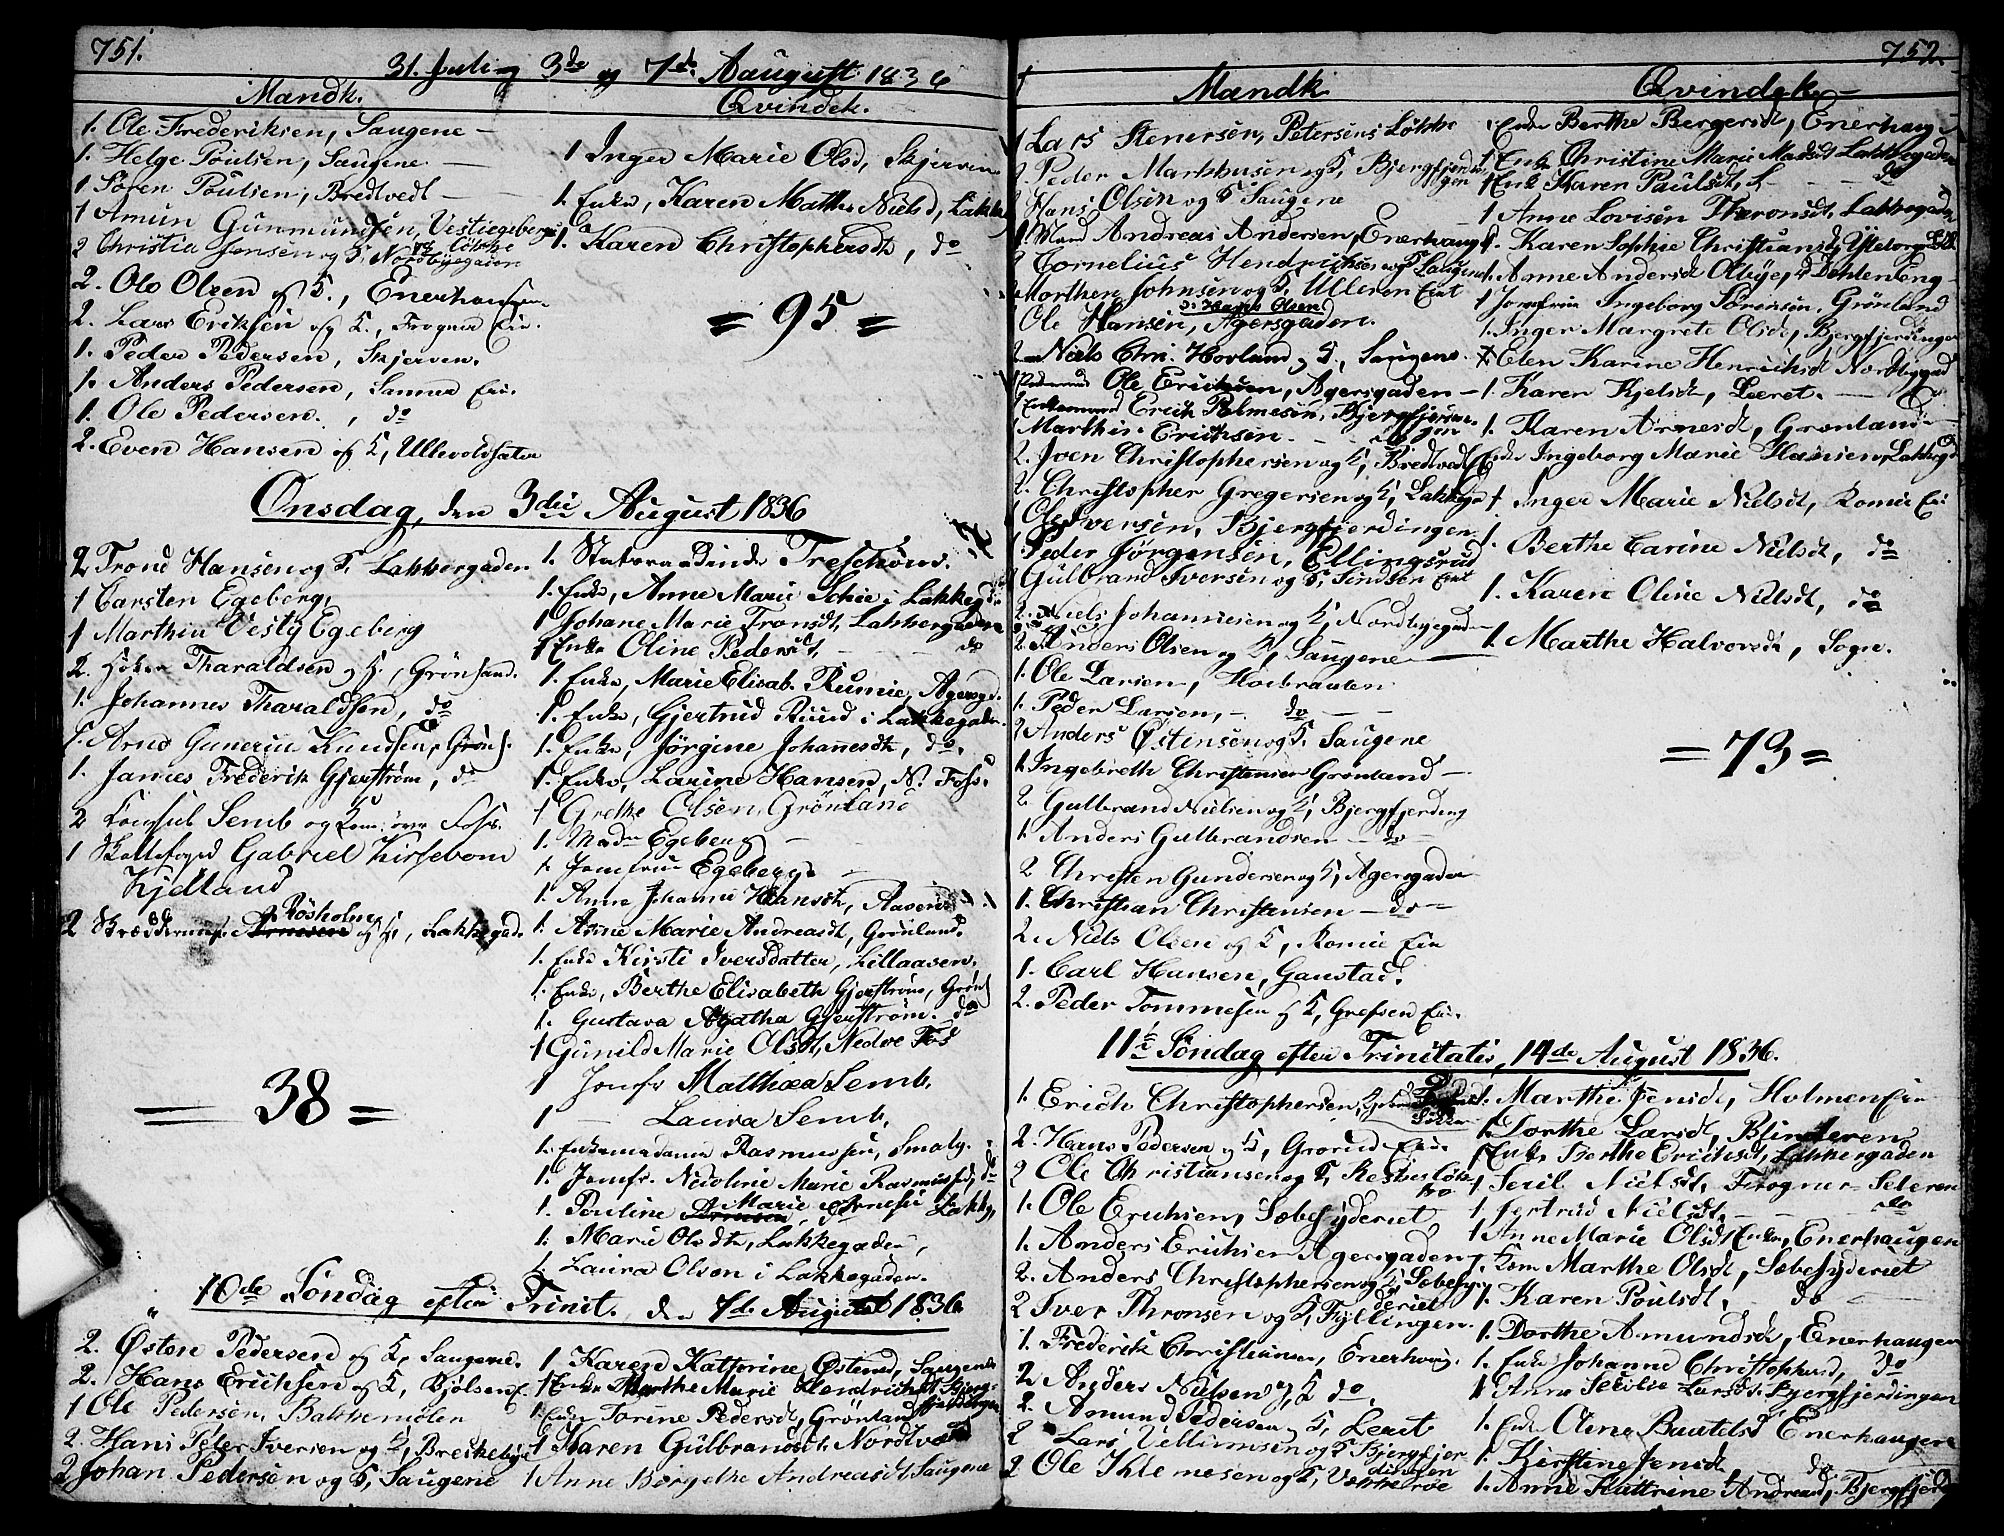 751.
31. Juli og 3de og 7de Aaugust 1836
Mandk.
1. Ole Frederiksen, Saugene -
1. Helge Poulsen, Saugene -
1 Søren Poulsen, Bredtvedt -
1 Amun Gunmundsen, Vestiegeberg
Løkke
2 Christia Jensen og K, Nordbyegaden
2. Ole Olsen og K., Enerhaugen
2. Lars Eriksen og K., Frogner Eie.
1. Peder Pedersen, Skjerven.
1. Anders Pedersen, Sanner Eie.
1. Ole Pedersen, do
2. Even Hansen og K, Ullevoldsæter
Qvindek.
1 Inger Marie Olsd, Skjerven
1. Enke, Karen Mathe Nielsd, Lakkeg
1. Karen Christophersdt, do
= 95 =
Onsdag, den 3die August 1836
2 Trond Hansen og K, Lakkergaden
1 Carsten Egeberg,
1 Marthin Vesty Egeberg
2. Haken Tharaldsen og K., Grønland.
1. Johannes Tharaldsen, do
1. Arne Gunerius Knudsen, Grønl.
1. James Frederik Gjerstrøm, do
2 Consul Semb og Kone, øvre Foss.
1 Skattefoged Gabriel Kirsebom
Kjelland
Røsholm
2 Skræddermest. Arnesen og K, Lakkegad.
= 38 =
1. Statsraadinde Treschows.
1. Enke, Anne Marie Schie i Lakkegd.
1 Johane Marie Tronsdt, Lakkergaden
1 Enke Oline Pedersdt - - do
1. Enke, Marie Elisab. Rumie, Agersgd.
1. Enke, Gjertrud Ruud i Lakkegaden.
1. Enke, Jørgine Johannesdt, do.
1. Enke, Larine Hansen, N. Foss.
1 Grethe Olsen, Grønland
1. Mad. Egeberg -
1. Jomfrue Egeberg -
1. Anne Johanne Hansdt, Aasen
1. Anne Marie Andreasdt, Grønland.
1. Enke Kirsti Iversdatter, Lillaasen.
1. Enke, Berthe Elisabeth Gjerstrøm, Grønl
1. Gustava Agatha Gjerstrøm. do
1 Gunild Marie Olsdt, Nedre Fos
1 Jomfr Mathæa Semb,
1 - Laura Semb,
1. Enkemadame Rasmussen, Smalg.
1. Jomfr. Nicoline Marie Rasmussen, do
1. Pouline Marie Arnesen Lakkeg,
1. Marie Olsdtr, Lakkegaden,
1. Laura Olsen i Lakkegaden.
10de Søndag efter Trinit. den 7de August 1836
2. Østen Pedersen og K, Saugene.
2. Hans Erichsen og K, Kjølsen E.
1 Ole Pedersen, Bakkemølen
2. Hans Peter Iversen og K, Brekkebye
2 Johan Pedersen og K, Saugene
1 Karen Kathrine Østensd, Saugene
1 Enke Marthe Marie Hendrichsdt Bjerg-
fjerdingen
1 Enke Torine Pedersdt, Grønland
1 Karen Gulbransdt, Nordtvedt
1 Anne Børgethe Andreasdt, Saugene
752.
Mandk.
1 Lars Stenersen, Petersens Løkke
2. Peder Markhusen og K, Bjergfjerdin-
gen
2 Hans Olsen og K Saugene
1. Mand Andreas Andersen, Enerhaug
2 Cornelius Hendrichsen og K Saugene
2 Morthen Johnsen og K, Ulleren Eiet
Ole Hansen, Agersgaden.
2 Niels Chri. Hovland og K, Saugene.
Pedermd Ole Erichsen, Agersgaden -
1 Enkemand Erich Palmesen, Bjergfjerdin-
gen
1 Marthin Erichsen - - do
2. Iven Christophersen og K, Bredtvedt
2. Christopher Gregersen og K, Lakkega
1 Ole Iversen, Bjergfjerdingen
1. Peder Jørgensen, Ellingsrud
2 Gulbrand Iversen og K, Sindsen Eiet
2. Niels Johannesen og K, Nordbyegaden
2. Anders Olsen og K, Saugene
1. Ole Larsen, Hoelbraaten
1. Peder Larsen, - do - -
2 Anders Østensen og K. Saugene
1 Ingebreth Christensen Grønland -
2. Gulbrand Nielsen og K, Bjergfjerding
1. Anders Gulbrandsen - do -
2 Christen Gundersen og K, Agersgaden
1. Christian Christensen - do -
2. Niels Olsen og K, Romie Eie
1. Carl Hansen, Gaustad.
2. Peder Tommesen og K, Grefsen Eie.
Qvindek -
1 Enke Berthe Bergersdt, Enerhaug
1 Enke Christine Marie Madsdt Lakkegaden
1 Enke Karen Paulsdt, - - do
1 Anne Lovisen Thronsdt, Lakkegaden
1. Karen Sophie Christiansdt,
1. Anne Andersdt Olbye, Dehleneng -
1 Jomfrue Ingeborg Sørensen, Grønland
1. Inger Margrete Olsdt, Bjergfjerdingen
1. Elen Karine Henrichsdt Nordbyegad
1. Karen Kjelsdt, Leeret. -
1. Karen Arnesdt, Grønland -
Enke Ingeborg Marie Hansen, Lakkega
1. Inger Marie Nielsdt, Romie Eie
1. Berthe Carine Nielsdt, do
1. Karen Oline Nielsdt, do
1. Marthe Halvorsdt, Sogn.
= 73 =
11te Søndag efter Trinitatis, 14de August 1836.
1. Erich Christophersen,
2. Hans Pedersen og K, Grorud Eie.
2 Ole Christiansen og K,
1. Ole Erichsen, Sæbesyderiet
1. Anders Erichsen Agersgaden
2. Anders Christophersen og K, Sæbesy-
deriet
2 Iver Thronsen og K, Fyllingen
1. Frederik Christiansen, Enerhaug.
2 Anders Nielsen og K do
2. Amund Pedersen og K, Leret
2 Lars Villumsen og K Bjergfjer
dingen
2 Ole Klemesen og K, Vækkerøe
1. Marthe Jensdt, Holmen Eie
1. Dorthe Larsdt, Blinderen
1 Enke Berthe Erichsdt, Lakkergaden
1 Seril Nielsdt, Frogner-Seteren
1 Jertrud Nielsdt, - - do
1 Anne Marie Olsdt Enke, Enerhaugen
1. Kone Marthe Olsdt, Sæbesyderiet
1. Karen Poulsdt, - do -
1. Dorthe Amundsdt, Enerhaugen
1. Enke Johanne Christophersd, do
1 Anne Secilie Larsdt Bjergfjerdingen
1. Enke Oline Enerhaugen
1. Kirstine Jensdt do
1. Anne Kattrine Andreasd, Bjergfjerd